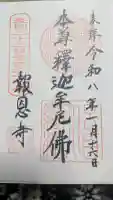 奉拝 令和八年一月十六日
本尊 釋迦牟尼佛
報恩寺